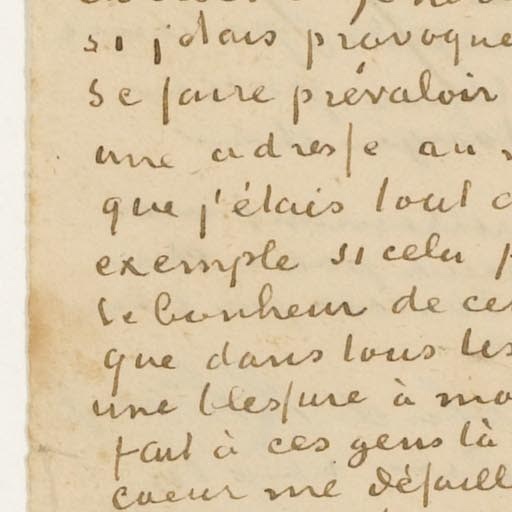 si j'dois provoque
se faire prévaloir
une adresse au
que j'étais tout
exemple si cela
le bonheur de ce
que dans tous les
une blessure à mo
fait à ces gens là
coeur me défaill